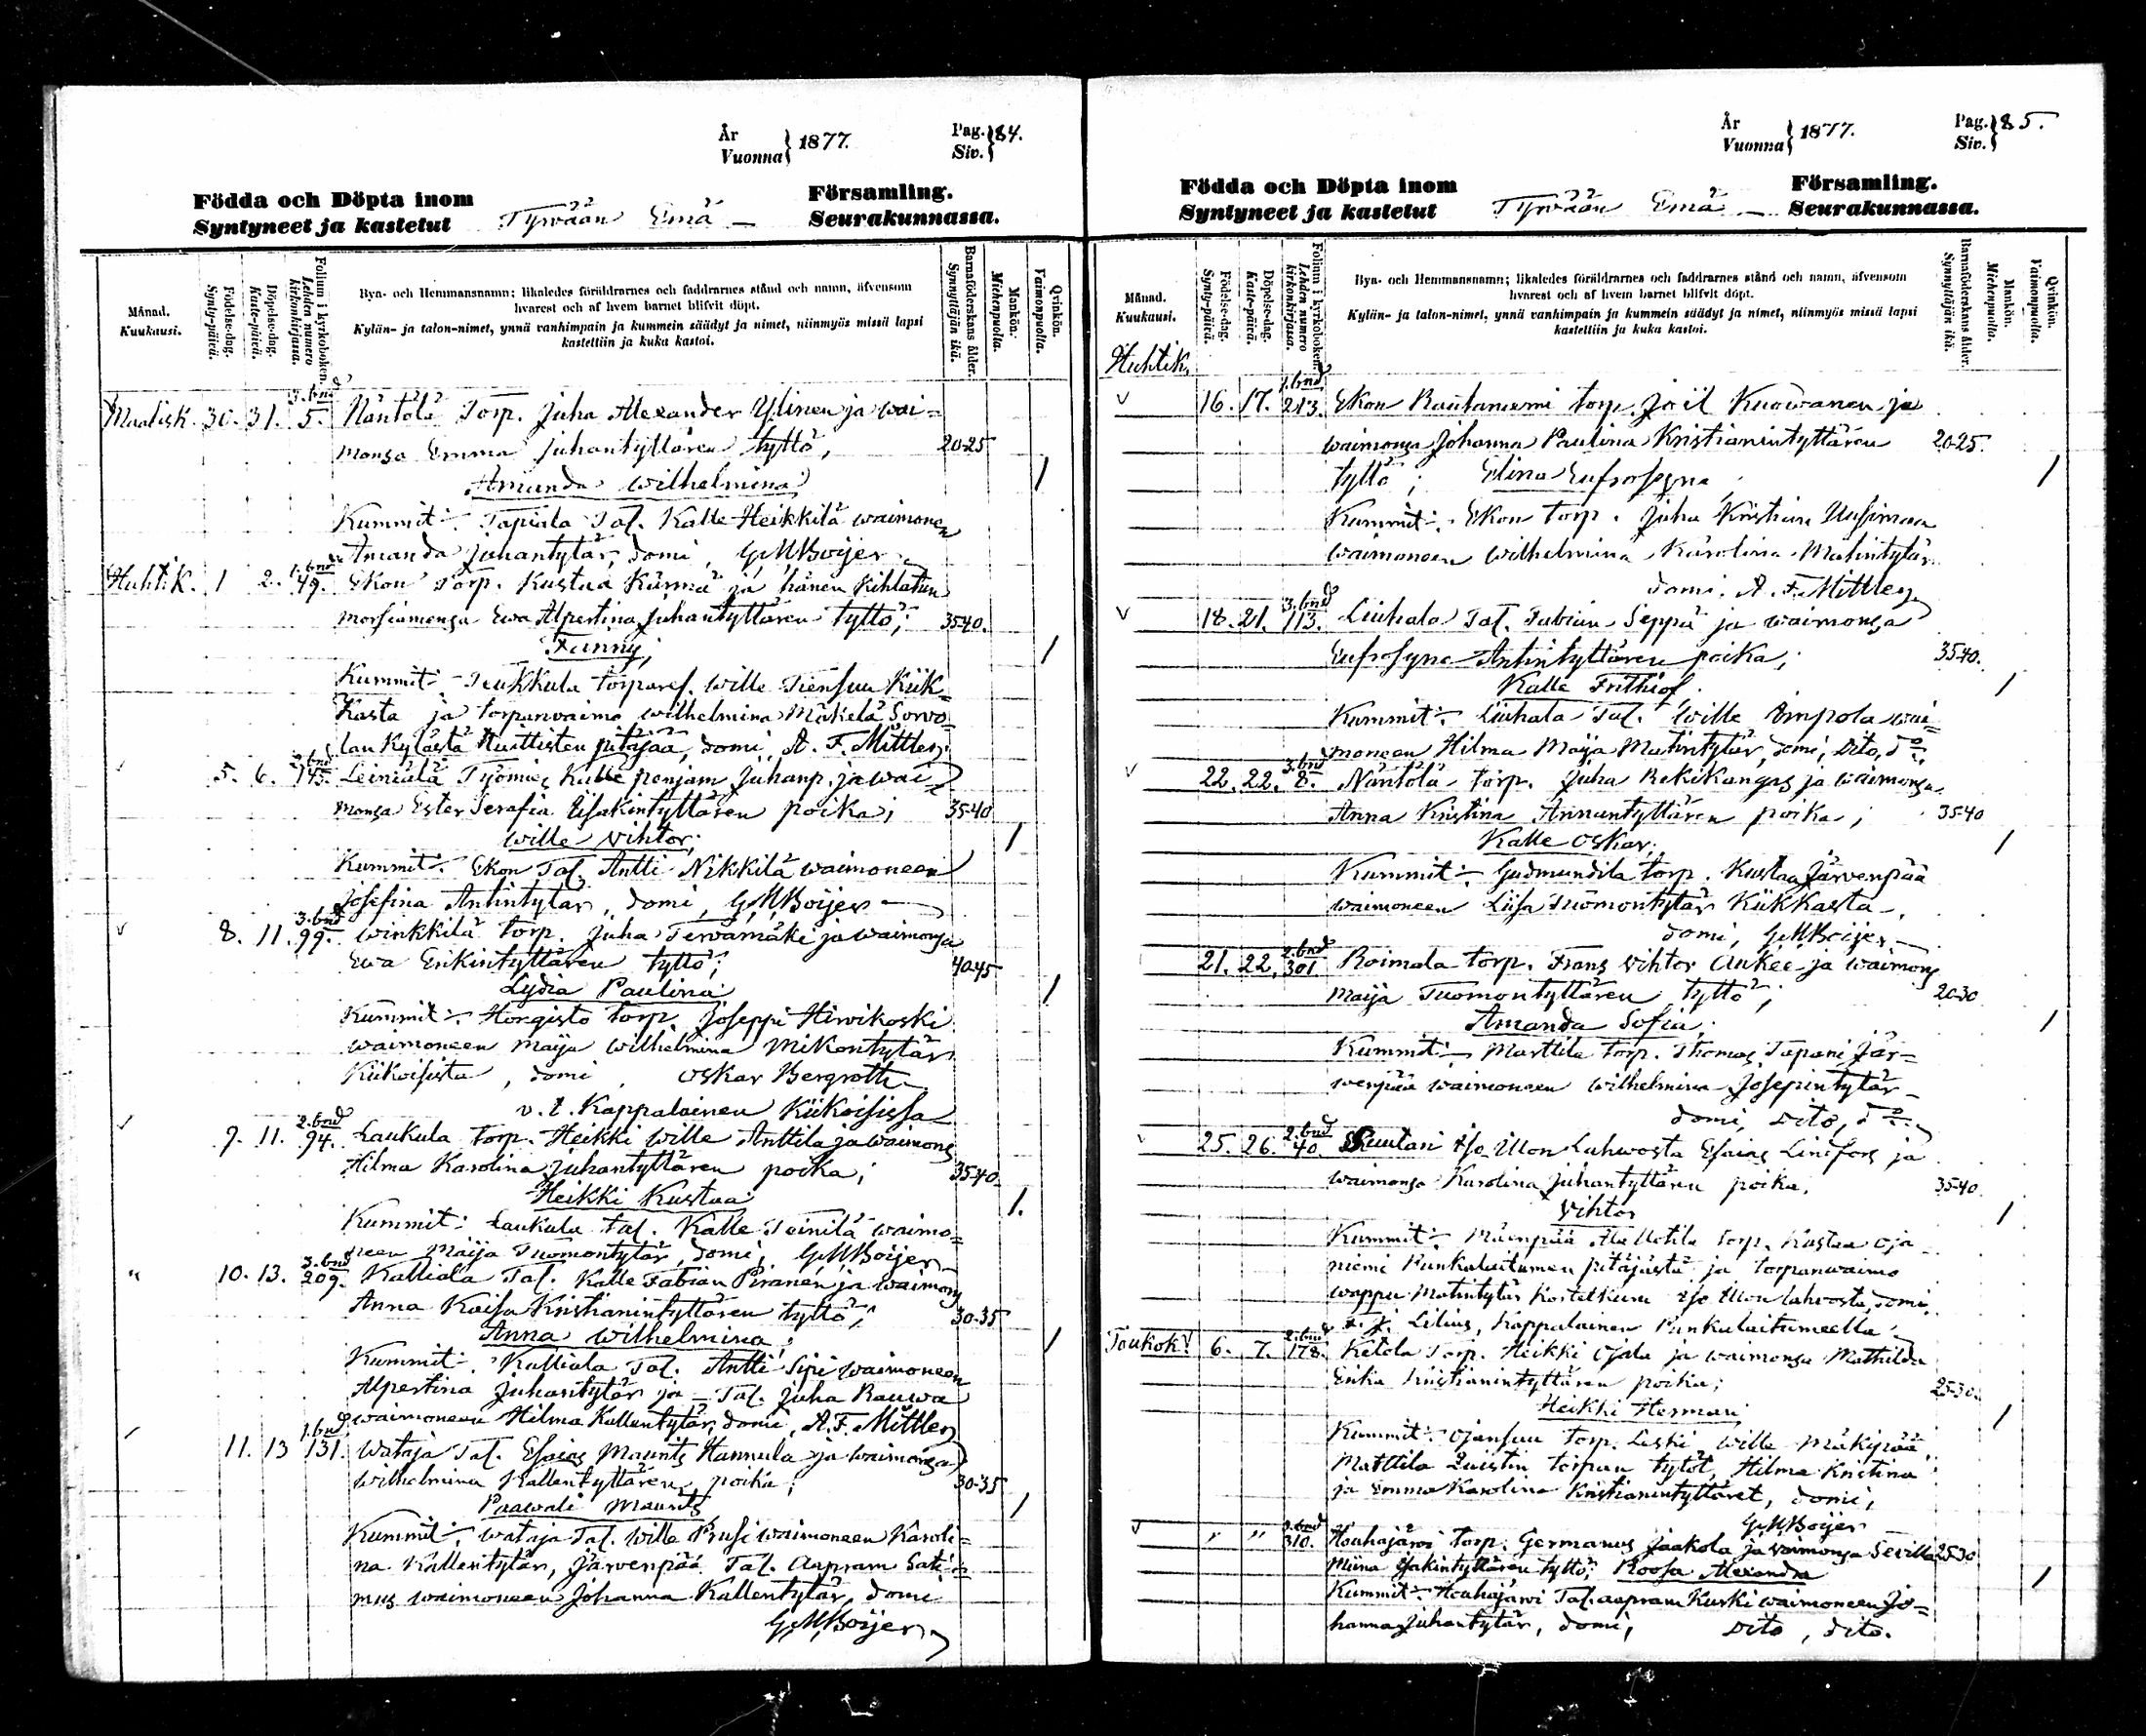 År
Vuonna} 1877.
Pag.
Siv.} 84.
Födda och Döpta inom
Syntyneet ja kastetut Tyrwään Emä — Församling.
Seurakunnassa.
Månad.
Kuukausi.
Födelse-dag.
Synty-päivä.
Döpelse-dag.
Kaste-päivä.
Folium i kyrkoboken.
Lehden numero kirkonkirjassa.
Bya- och Hemmansnamn; likaledes föräldrarnes och faddrarnes stånd och namn, äfvensom
hvarest och af hvem barnet blifvit döpt.
Kylän- ja talon-nimet, ynnä vanhimpain ja kummein säädyt ja nimet, niinmyös missä lapsi
kastettiin ja kuka kastoi.
Barnaföderskans ålder.
Synnyttäjän ikä.
Mankön.
Miehenpuolta.
Qvinkön.
Vaimonpuolta.
Maalisk. 30. 31. 3. bnd 5. Näntölä Torp. Juha Alexander Ylinen ja wai=
monsa Emma Juhantyttären tyttö, 20-25
Amanda Wilhelmina 1
Kummit:. Tapiala Tal. Kalle Heikkilä waimonen
Amanda Juhantytär, domi, G M Boijer
Huhtik. 1 2. 1. bnd 49. Ekon Torp. Kustaa Kärmä ja hänen Kihlatun
morsiamensa Ewa Alpertina Juhantyttären tyttö; 35-40.
Fanny, 1
Kummit:. Teukkula torparef. Wille Tiensuu Kiik=
kasta ja torpanwaimo Wilhelmina Mäkelä Sorwo=
lan Kylästä Huittisten pitäjää, domi, A. F. Mittler.
5. 6. 2. bnd 145. Leiniälä Työmies Kalle penjam Juhanp. ja wai
monsa Ester Serafia Eisakintyttären poika; 35-40
Wille Vihtor; 1
Kummit:. Ekon Tal. Antti Nikkilä waimoneen
Josefina Antintytär, domi, G M Boijer
8. 11. 3. bnd 99. Winkkilä torp. Juha Terwamäki ja waimonsa
Ewa Erikintyttären tyttö; 40-45
Lydia Paulina; 1
Kummit:. Horgisto torp. Joseppi Hirwikoski
waimoneen Maija Wilhelmina Mikontytär
Kiikoisista, domi, Oskar Bergroth
v. t. Kappalainen Kiikoisissa
9. 11. 2. bnd 94. Laukula torp. Heikki Wille Anttila ja waimons
Hilma Karolina Juhantyttären poika; 35-40.
Heikki Kustaa 1.
Kummit: Laukula tal. Kalle Teinilä waimo=
neen Maija Tuomontytär, domi, G M Boijer
" 10. 13. 3. bnd 209. Kalliala Tal. Kalle Fabian Piranen ja waimons
Anna Kaisa Kristianintyttären tyttö; 30-35
Anna Wilhelmina; 1
Kummit:. Kalliala Tal. Antti Sipi waimoneen
Alpertina Juhantytär ja — Tal. Juha Rauwa
waimoneen Hilma Kallentytär, domi, A. F. Mittler
11. 13 1. bnd 131. Wataja Tal. Esaias Maunts Hannula ja waimonsa
Wilhelmina Kallentyttären poika; 30-35
Paawali Maurits 1
Kummit:. Wataja Tal. Wille Prusi waimoneen Karoli=
na Kallentytär, Järwenpää Tal. Aapram
waimoneen Johanna Kallentytär, domi
G M Boijer
År
Vuonna} 1877.
Pag.
Siv.} 85.
Födda och Döpta inom
Syntyneet ja kastetut Tyrwään Emä — Församling.
Seurakunnassa.
Månad.
Kuukausi.
Födelse-dag.
Synty-päivä.
Döpelse-dag.
Kaste-päivä.
Folium i kyrkoboken.
Lehden numero kirkonkirjassa.
Bya- och Hemmansnamn; likaledes föräldrarnes och faddrarnes stånd och namn, äfvensom
hvarest och af hvem barnet blifvit döpt.
Kylän- ja talon-nimet, ynnä vanhimpain ja kummein säädyt ja nimet, niinmyös missä lapsi
kastettiin ja kuka kastoi.
Barnaföderskans ålder.
Synnyttäjän ikä.
Mankön.
Miehenpuolta.
Qvinkön.
Vaimonpuolta.
Huhtik.
16. 17. 1. bnd 213. Ekon Rautaniemi torp. Joil Kuowanen ja
waimonsa Johanna Paulina Kristianintyttären 20-25.
tyttö; Elina Eufrosyna 1
Kummit:. Ekon torp. Juha Kristian Uusimaa
waimoneen Wilhelmina Karolina Matintytär
domi. A. F. Mittler
18. 21. 3. bnd 113. Liuhala Tal. Fabian Seppä ja waimonsa
Eufrosyna Antintyttären poika; 35-40.
Kalle Frithiof 1
Kummit:. Liuhala Tal. Wille Ampola wai=
moneen Hilma Maija Matintytär, domi, Dito, do.
22. 22. 3. bnd 8. Näntölä torp. Juha Rekikangas ja waimonsa
Anna Kristina Annantyttären poika; 35-40
Kalle Oskar; 1
Kummit:. Gudmundila torp. Kustaa Järvenpää
waimoneen Liisa Tuomontytär Kiikkasta,
domi, G M Boijer
21. 22. 2. bnd 301 Roimala torp. Frans Vihtor Aukee ja waimons
Maija Tuomontyttären tyttö; 20-30
Amanda Sofia; 1
Kummit:. Marttila torp. Thomas Tapani Jär=
wenpää waimoneen Wilhelmina Josepintytär
domi, Dito, do.
25. 26. 2. bnd 40. Suutari Iso Ulon Lahwosta Esaias Linefors ja
waimonsa Karolina Juhantyttären poika, 35-40
Vihtor 1
Kummit:. torp. Kustaa Oja
niemi Punkalaitumen pitäjästä ja torpanwaimo
Wappu Matintytär Iso Ulon lahwosta, domi,
Lilius, Kappalainen Punkalaitumella
Toukok. 6. 7. 2. bnd 178. Ketola Torp. Heikki Ojala ja waimonsa Mathilda
Erika Kristianintyttären poika; 25-30.
Heikki Herman 1
Kummit:. Ojansuu torp. Leski Wille Mäkipää
Mattila Luistin torpan tytöt, Hilma Kristina
ja Emma Karolina Kristianintyttäret, domi,
G M Boijer
" " 3. bnd 310. Houhajärwi torp. Germanus Jaakola ja waimonsa Sevilla 25-30
Miina Isakintyttären tyttö; Roosa Alexandra 1
Kummit:. Houhajärwi Tal. Aapram Kurki waimoneen Jo=
hanna Juhantytär, domi, Dito, dito.